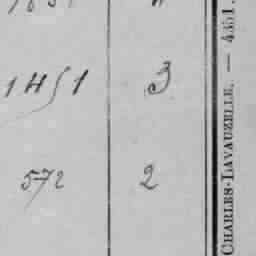 1451 3
572 2
CHARLES-LAVAUZELLE. — 4351.